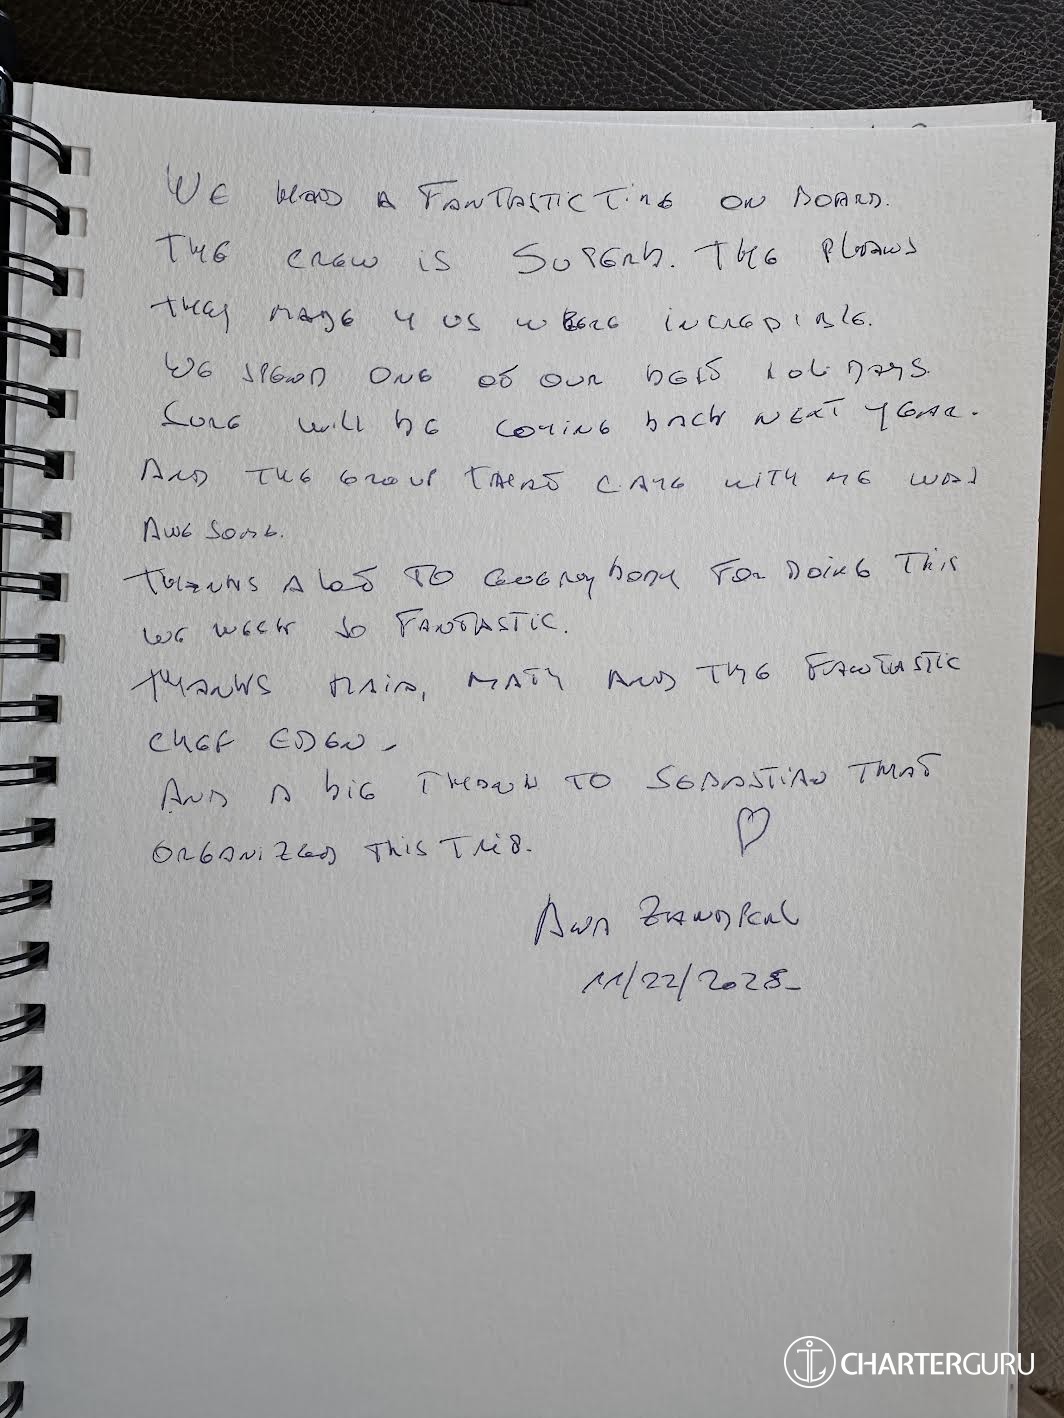 WE HAD A FANTASTIC TIME ON BOARD.
THE CREW IS SUPERB. THE PLANS
THEY MADE 4 US WERE INCREDIBLE.
WE SPEND ONE OF OUR BEST HOLIDAYS.
SURE WILL BE COMING BACK NEXT YEAR.
AND THE GROUP THAT CAME WITH ME WAS
AWESOME.
THANKS A LOT TO EVERYBODY FOR DOING THIS
WE WEEK SO FANTASTIC.
THANKS MAIA, MATY AND THE FANTASTIC
CHEF EDEN.
AND A BIG THANK TO SEBASTIAN THAT
ORGANIZED THIS TRIP.
ANA
11/22/2025
CHARTERGURU